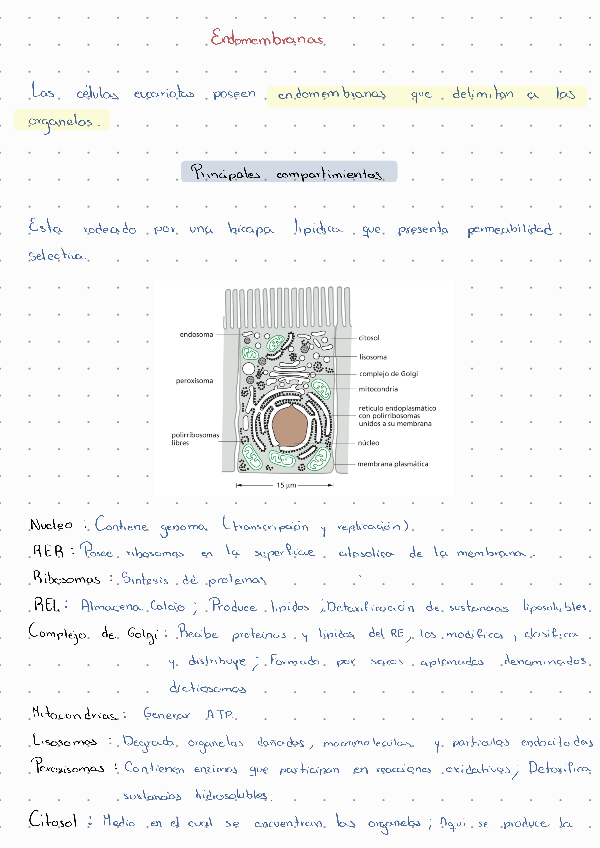 Endomembranas
Las células eucariotas poseen endomembranas que delimitan a las
organelos.
Principales compartimientos
Esta rodeado por una bicapa lipídica que presenta permeabilidad
selectiva.
endosoma
citosol
lisosoma
complejo de Golgi
peroxisoma
mitocondria
retículo endoplasmático
con polirribosomas
unidos a su membrana
polirribosomas
libres
núcleo
membrana plasmática
15 µm
Nucleo : Contiene genoma (transcripción y replicación).
RER : Posee ribosomas en la superficie citosolica de la membrana.
Ribosomas : Sintesis de proteinas
REL : Almacena Calcio ; Produce lipidos ; Detoxificación de sustancias liposolubles.
Complejo de Golgi : Recibe proteinas y lipidos del RE, los modifica, clasifica
y distribuye ; Formado por sacos aplanados denominados
dictiosomas
Mitocondrias : Generar ATP.
Lisosomas : Degrada organelas dañadas, macromoleculas y particulas endocitadas
Peroxisomas : Contienen enzimas que participan en reacciones oxidativas, Detoxifica
sustancias hidrosolubles.
Citosol : Medio en el cual se encuentran los organelos ; Aqui se produce la